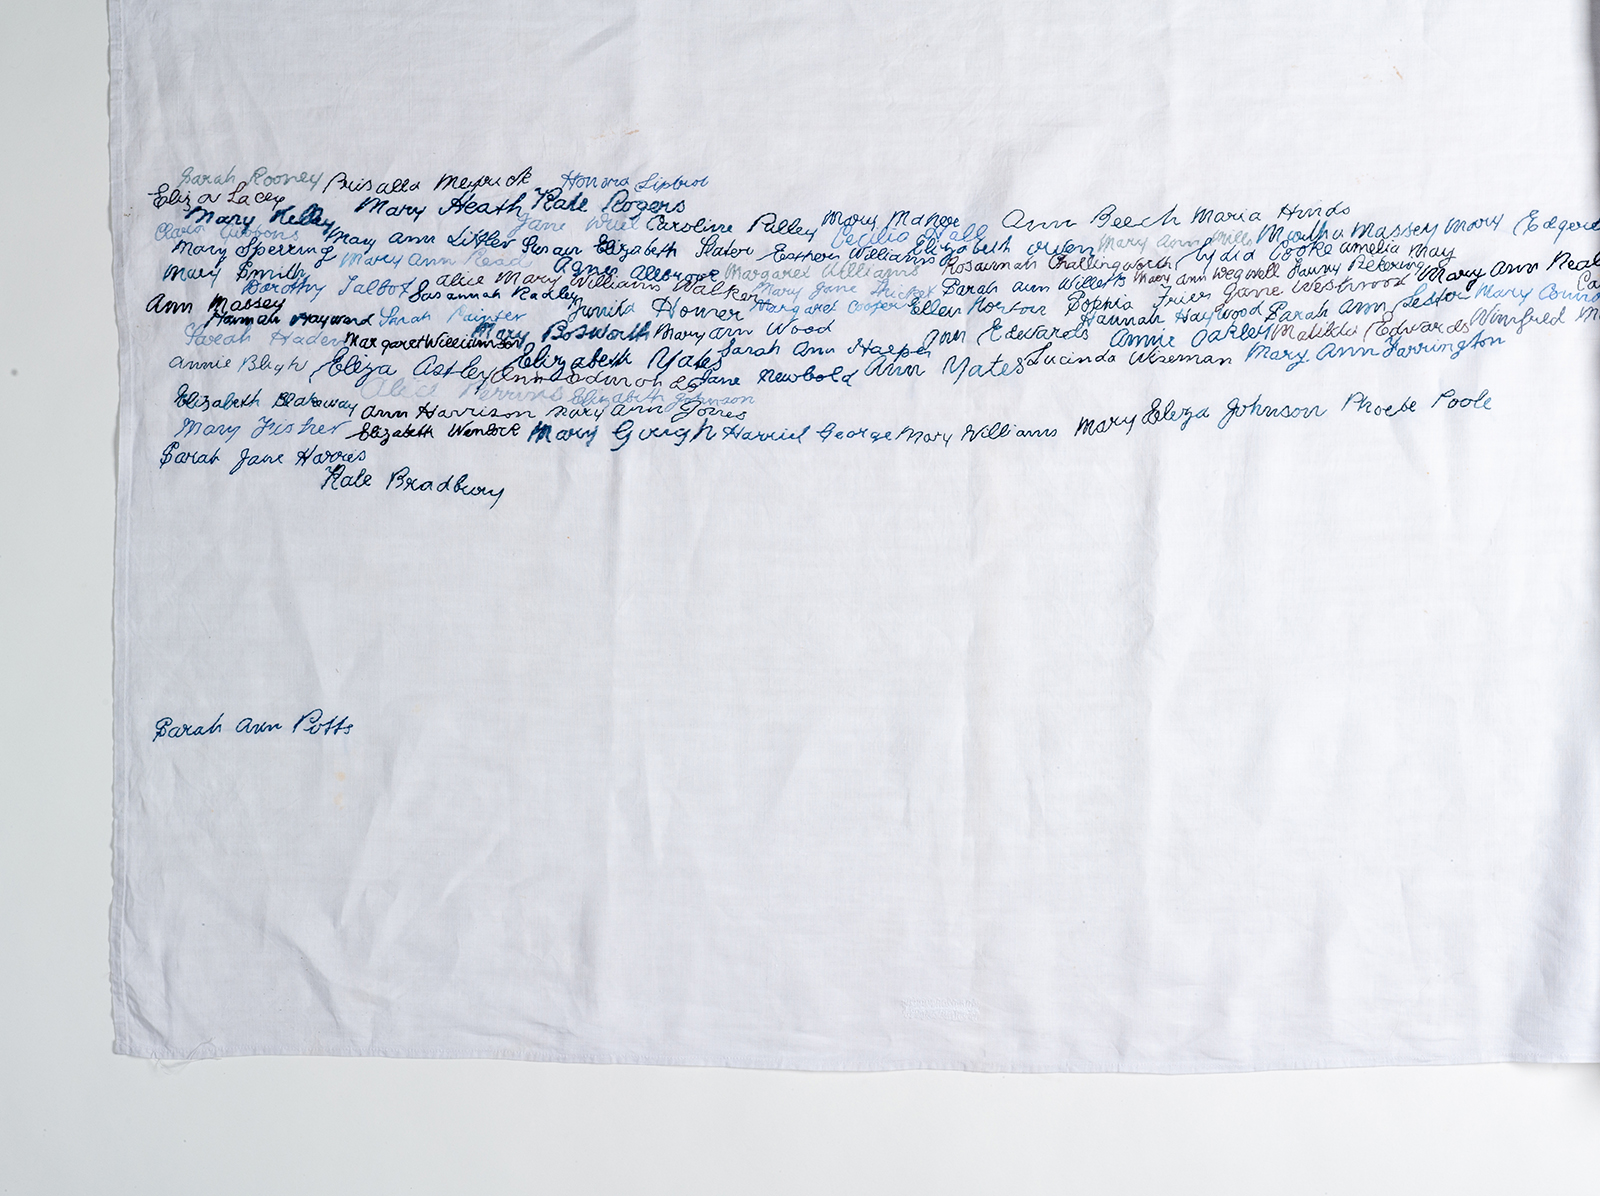 Sarah Rooney Prisalla Meyrick Honora Liptrot
Eliza Lacey Mary Heath Kate Rogers
Mary Kelly Jane Caroline Palley Mary Ann Beech Maria Hinds
Gibbons Mary Ann Littler Susan Elizabeth Slater Esther Williams Cecilia Hall Elizabeth Owen Mary Ann Mills Martha Massey Mary
Mary Sperring Mary Ann Read Agnes Allbrook Margaret Williams Rosannah Challingworth Lydia Cooke Amelia May
Mary Smith Alice Mary Williams Walker Mary Jane Sarah Ann Willetts Mary Ann Wegwell Fanny Pickering Mary Ann Neal
Dorothy Talbot Susannah Radley Margaret Cooper Ellen Horton Sophia Jane Westwood
Ann Massey Homer Hannah Haywood Sarah Ann Lester Mary
Hannah Hayward Sarah Painter Mary Bosworth Mary Ann Wood Ann Edwards Annie Oakley Matilda Edwards Winifred
Sarah Haden Margaret Williamson Sarah Ann Harper Lucinda Wiseman Mary Ann Farrington
Annie Bligh Eliza Astley Elizabeth Yates Jane Newbold Ann Yates
Alice Perrins Elizabeth Johnson
Elizabeth Blakeway Ann Harrison Mary Ann Jones
Mary Fisher Elizabeth Wenlock Mary Gough Harriet George Mary Williams Mary Eliza Johnson Phoebe Poole
Sarah Jane Harris
Kate Bradbury
Sarah Ann Potts